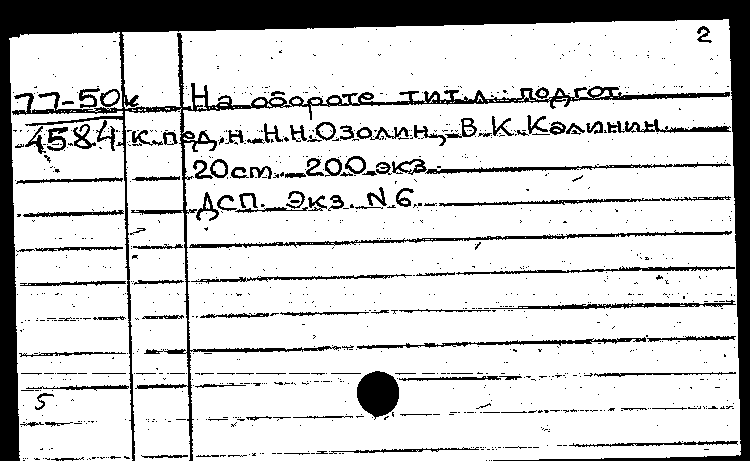 2
77-50к На обороте тит.л.: подгот.
4584 к.пед.н. Н.Н.Озолин, В.К.Калинин.
20см. 200 экз.
ДСП. Экз. N 6.
5